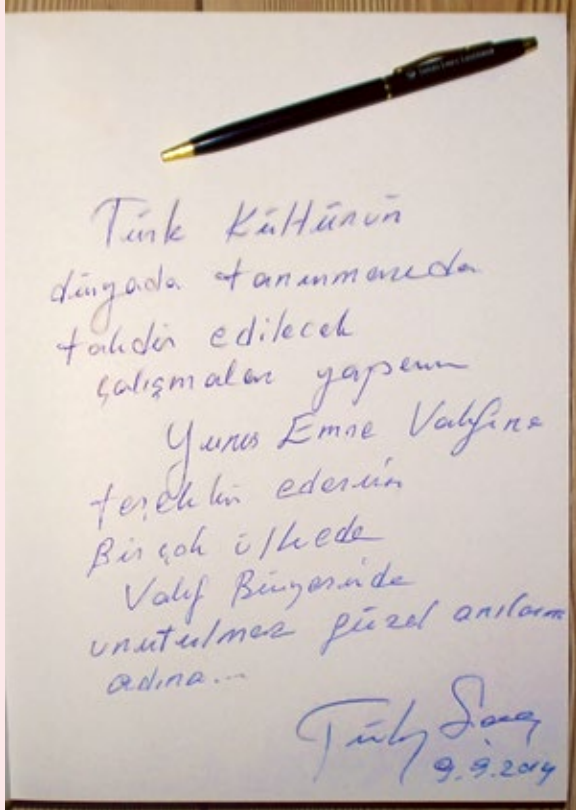 Türk Kültürün
dünyada tanınmasında
takdir edilecek
çalışmalar yapan
Yunus Emre Vakfına
teşekkür ederim
Birçok ülkede
Vakıf Bünyesinde
unutulmaz güzel anılarım
adına...
9.9.2014